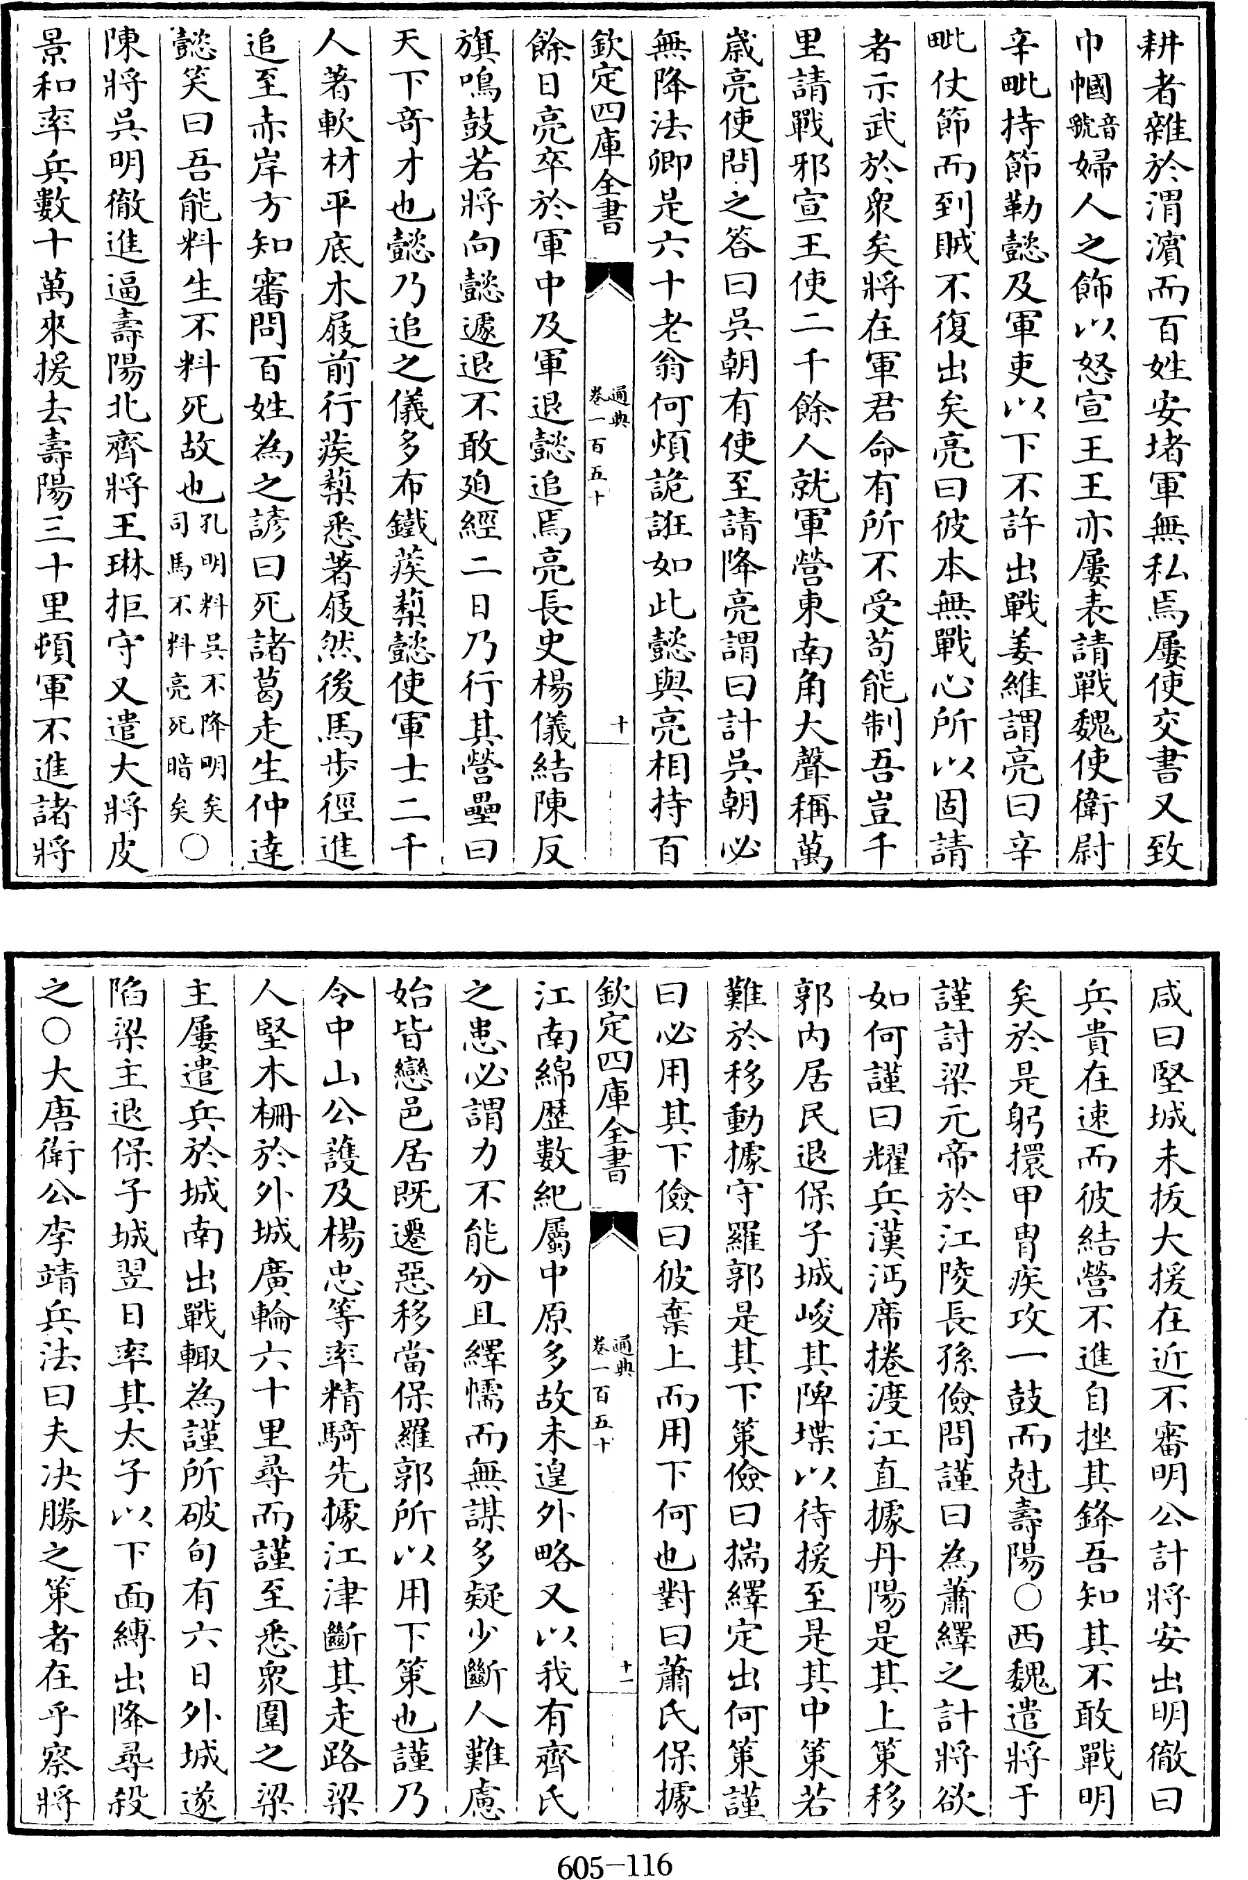 耕者雜於渭濵而百姓安堵軍無私焉屢使交書又致
巾幗音虢婦人之飾以怒宣王王亦屢表請戰魏使衛尉
辛毗持節勒懿及軍吏以下不許出戰姜維謂亮曰辛
毗仗節而到賊不復出矣亮曰彼本無戰心所以固請
者示武於衆矣將在軍君命有所不受苟能制吾豈千
里請戰邪宣王使二千餘人就軍營東南角大聲稱萬
歲亮使問之答曰吳朝有使至請降亮謂曰計吳朝必
無降法卿是六十老翁何煩詭誑如此懿與亮相持百
欽定四庫全書
通典
卷一百五十
十
餘日亮卒於軍中及軍退懿追焉亮長史楊儀結陳反
旗鳴鼓若將向懿遽退不敢廹經二日乃行其營壘曰
天下奇才也懿乃追之儀多布鐵蒺蔾懿使軍士二千
人著軟材平底木屐前行蒺蔾悉著屐然後馬步徑進
追至赤岸方知審問百姓為之諺曰死諸葛走生仲達
懿笑曰吾能料生不料死故也孔明料吳不降明矣司馬不料亮死暗矣○
陳將吳明徹進逼壽陽北齊將王琳拒守又遣大將皮
景和率兵數十萬來援去壽陽三十里頓軍不進諸將
咸曰堅城未拔大援在近不審明公計將安出明徹曰
兵貴在速而彼結營不進自挫其鋒吾知其不敢戰明
矣於是躬擐甲胄疾攻一鼓而尅壽陽○西魏遣將于
謹討梁元帝於江陵長孫儉問謹曰為蕭繹之計將欲
如何謹曰耀兵漢沔席捲渡江直據丹陽是其上策移
郭内居民退保子城峻其陴堞以待援至是其中策若
難於移動據守羅郭是其下策儉曰揣繹定出何策謹
曰必用其下儉曰彼棄上而用下何也對曰蕭氏保據
欽定四庫全書
通典
卷一百五十
十一
江南綿歷數紀屬中原多故未遑外略又以我有齊氏
之患必謂力不能分且繹懦而無謀多疑少斷人難慮
始皆戀邑居既遷惡移當保羅郭所以用下策也謹乃
令中山公護及楊忠等率精騎先據江津斷其走路梁
人堅木柵於外城廣輪六十里尋而謹至悉衆圍之梁
主屢遣兵於城南出戰輙為謹所破旬有六日外城遂
陷梁主退保子城翌日率其太子以下面縛出降尋殺
之○大唐衛公李靖兵法曰夫決勝之策者在乎察將
605-116